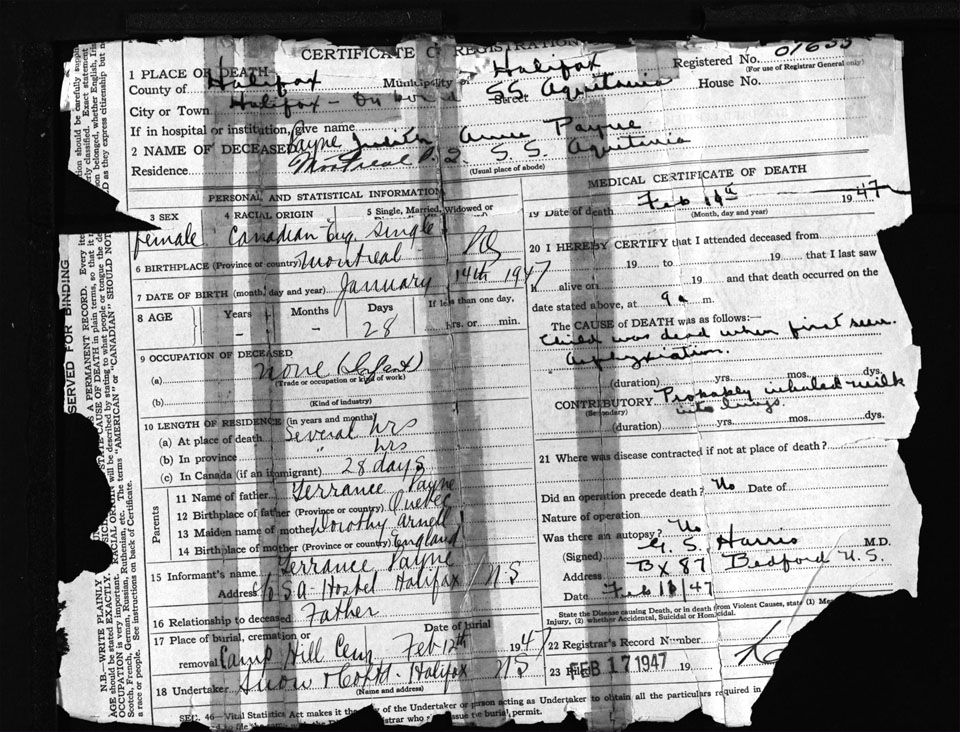 CERTIFICATE OF REGISTRATION
Registered No. 01655
(For use of Registrar General only)
1 PLACE OF DEATH
County of Halifax Municipality of Halifax
City or Town Halifax - On board Street S.S. Aquitania House No.
If in hospital or institution, give name
2 NAME OF DECEASED Payne Judith Anne Payne
Residence Montreal P.Q. S.S. Aquitania
(Usual place of abode)
PERSONAL AND STATISTICAL INFORMATION
3 SEX 4 RACIAL ORIGIN 5 Single, Married, Widowed or
female Canadian Eng Single
6 BIRTHPLACE (Province or country) Montreal PQ
7 DATE OF BIRTH (month, day and year) January 14th 1947
8 AGE Years Months Days If less than one day,
- - 28 hrs. or min.
9 OCCUPATION OF DECEASED
(a) none (Infant)
(Trade or occupation or kind of work)
(b)
(Kind of industry)
10 LENGTH OF RESIDENCE (in years and months)
(a) At place of death Several hrs
(b) In province " hrs
(c) In Canada (if an immigrant) 28 days
Parents
11 Name of father Terrance Payne
12 Birthplace of father (Province or country) Quebec
13 Maiden name of mother Dorothy Arnell
14 Birthplace of mother (Province or country) England
15 Informant's name Terrance Payne
Address c/o S.A. Hostel Halifax NS
16 Relationship to deceased Father
17 Place of burial, cremation or Date of burial
removal Camp Hill Cem Feb 12th 1947
18 Undertaker Snow & Co Ltd. Halifax NS
(Name and address)
MEDICAL CERTIFICATE OF DEATH
19 Date of death Feb 1947
(Month, day and year)
20 I HEREBY CERTIFY that I attended deceased from
19 to 19 that I last saw
alive on 19 and that death occurred on the
date stated above, at 9 a m.
The CAUSE of DEATH was as follows:—
Child was dead when first seen.
Asphyxiation.
(duration) yrs. mos. dys.
CONTRIBUTORY Probably inhaled milk
(Secondary) into lungs.
(duration) yrs. mos. dys.
21 Where was disease contracted if not at place of death?
Did an operation precede death? No Date of
Nature of operation
Was there an autopsy? No
(Signed) G. S. Harris M.D.
Address Bx 87 Bedford
Date Feb /47
State the Disease causing Death, or in death from Violent Causes, state (1)
Injury, (2) whether Accidental, Suicidal or Homicidal.
22 Registrar's Record Number
23 Filed FEB 17 1947 19
SEC. 46—Vital Statistics Act makes it the of the Undertaker or person acting as Undertaker to obtain all the particulars required in
burial permit.
RESERVED FOR BINDING
N.B.—WRITE PLAINLY
AGE should be stated EXACTLY.
OCCUPATION is very important.
Scotch, French, German, Russian, Ruthenian, etc. The terms "AMERICAN" or "CANADIAN" SHOULD NOT
a race or people. See instructions on back of Certificate.